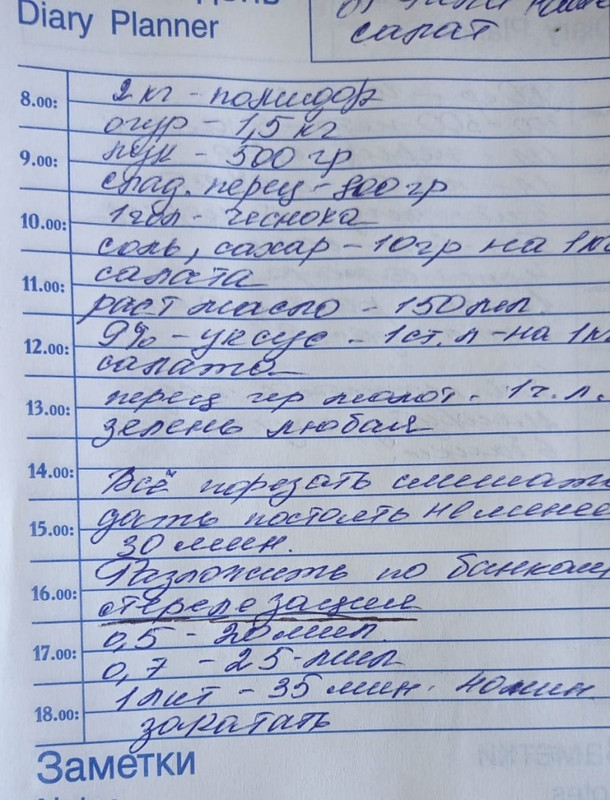 Diary Planner
салат
8.00:
2 кг - помидор
огур - 1,5 кг
9.00:
лук - 500 гр
слад. перец - 800 гр
10.00:
1 гол - чеснока
соль, сахар - 10 гр на 1 кг
11.00:
салата
раст масло - 150 мл
9% - уксус - 1 ст. л - на 1 кг
12.00:
салата
перец чер молот. 1 ч. л.
13.00:
зелень любая
14.00:
Всё порезать смешать
15.00:
дать постоять не менее
30 мин.
Разложить по банкам
16.00:
стерелезация
0,5 - 20 мин.
17.00:
0,7 - 25 мин
1 лит - 35 мин. 40 мин.
18.00:
закатать
Заметки